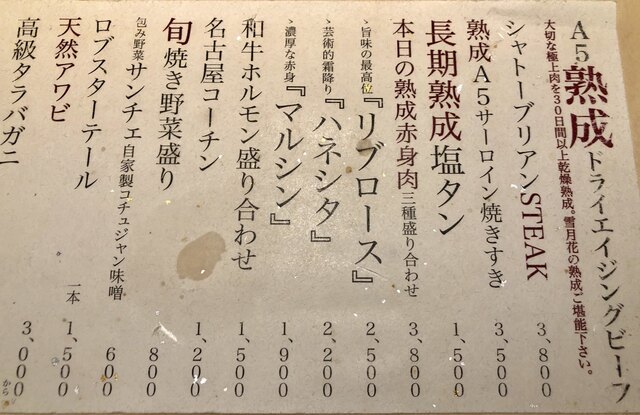 A5熟成ドライエイジングビーフ
大切な極上肉を30日間以上乾燥熟成。雪月花の熟成ご堪能下さい。
シャトーブリアンSTEAK 3,800
熟成A5サーロイン焼きすき 3,500
長期熟成塩タン 1,500
本日の熟成赤身肉三種盛り合わせ 3,800
、旨味の最高位『リブロース』 2,500
、芸術的霜降り『ハネシタ』 2,200
、濃厚な赤身『マルシン』 1,900
和牛ホルモン盛り合わせ 1,500
名古屋コーチン 1,200
旬焼き野菜盛り 800
包み野菜サンチェ自家製コチュジャン味噌 600
ロブスターテール 一本 1,500
天然アワビ 3,000から
高級タラバガニ